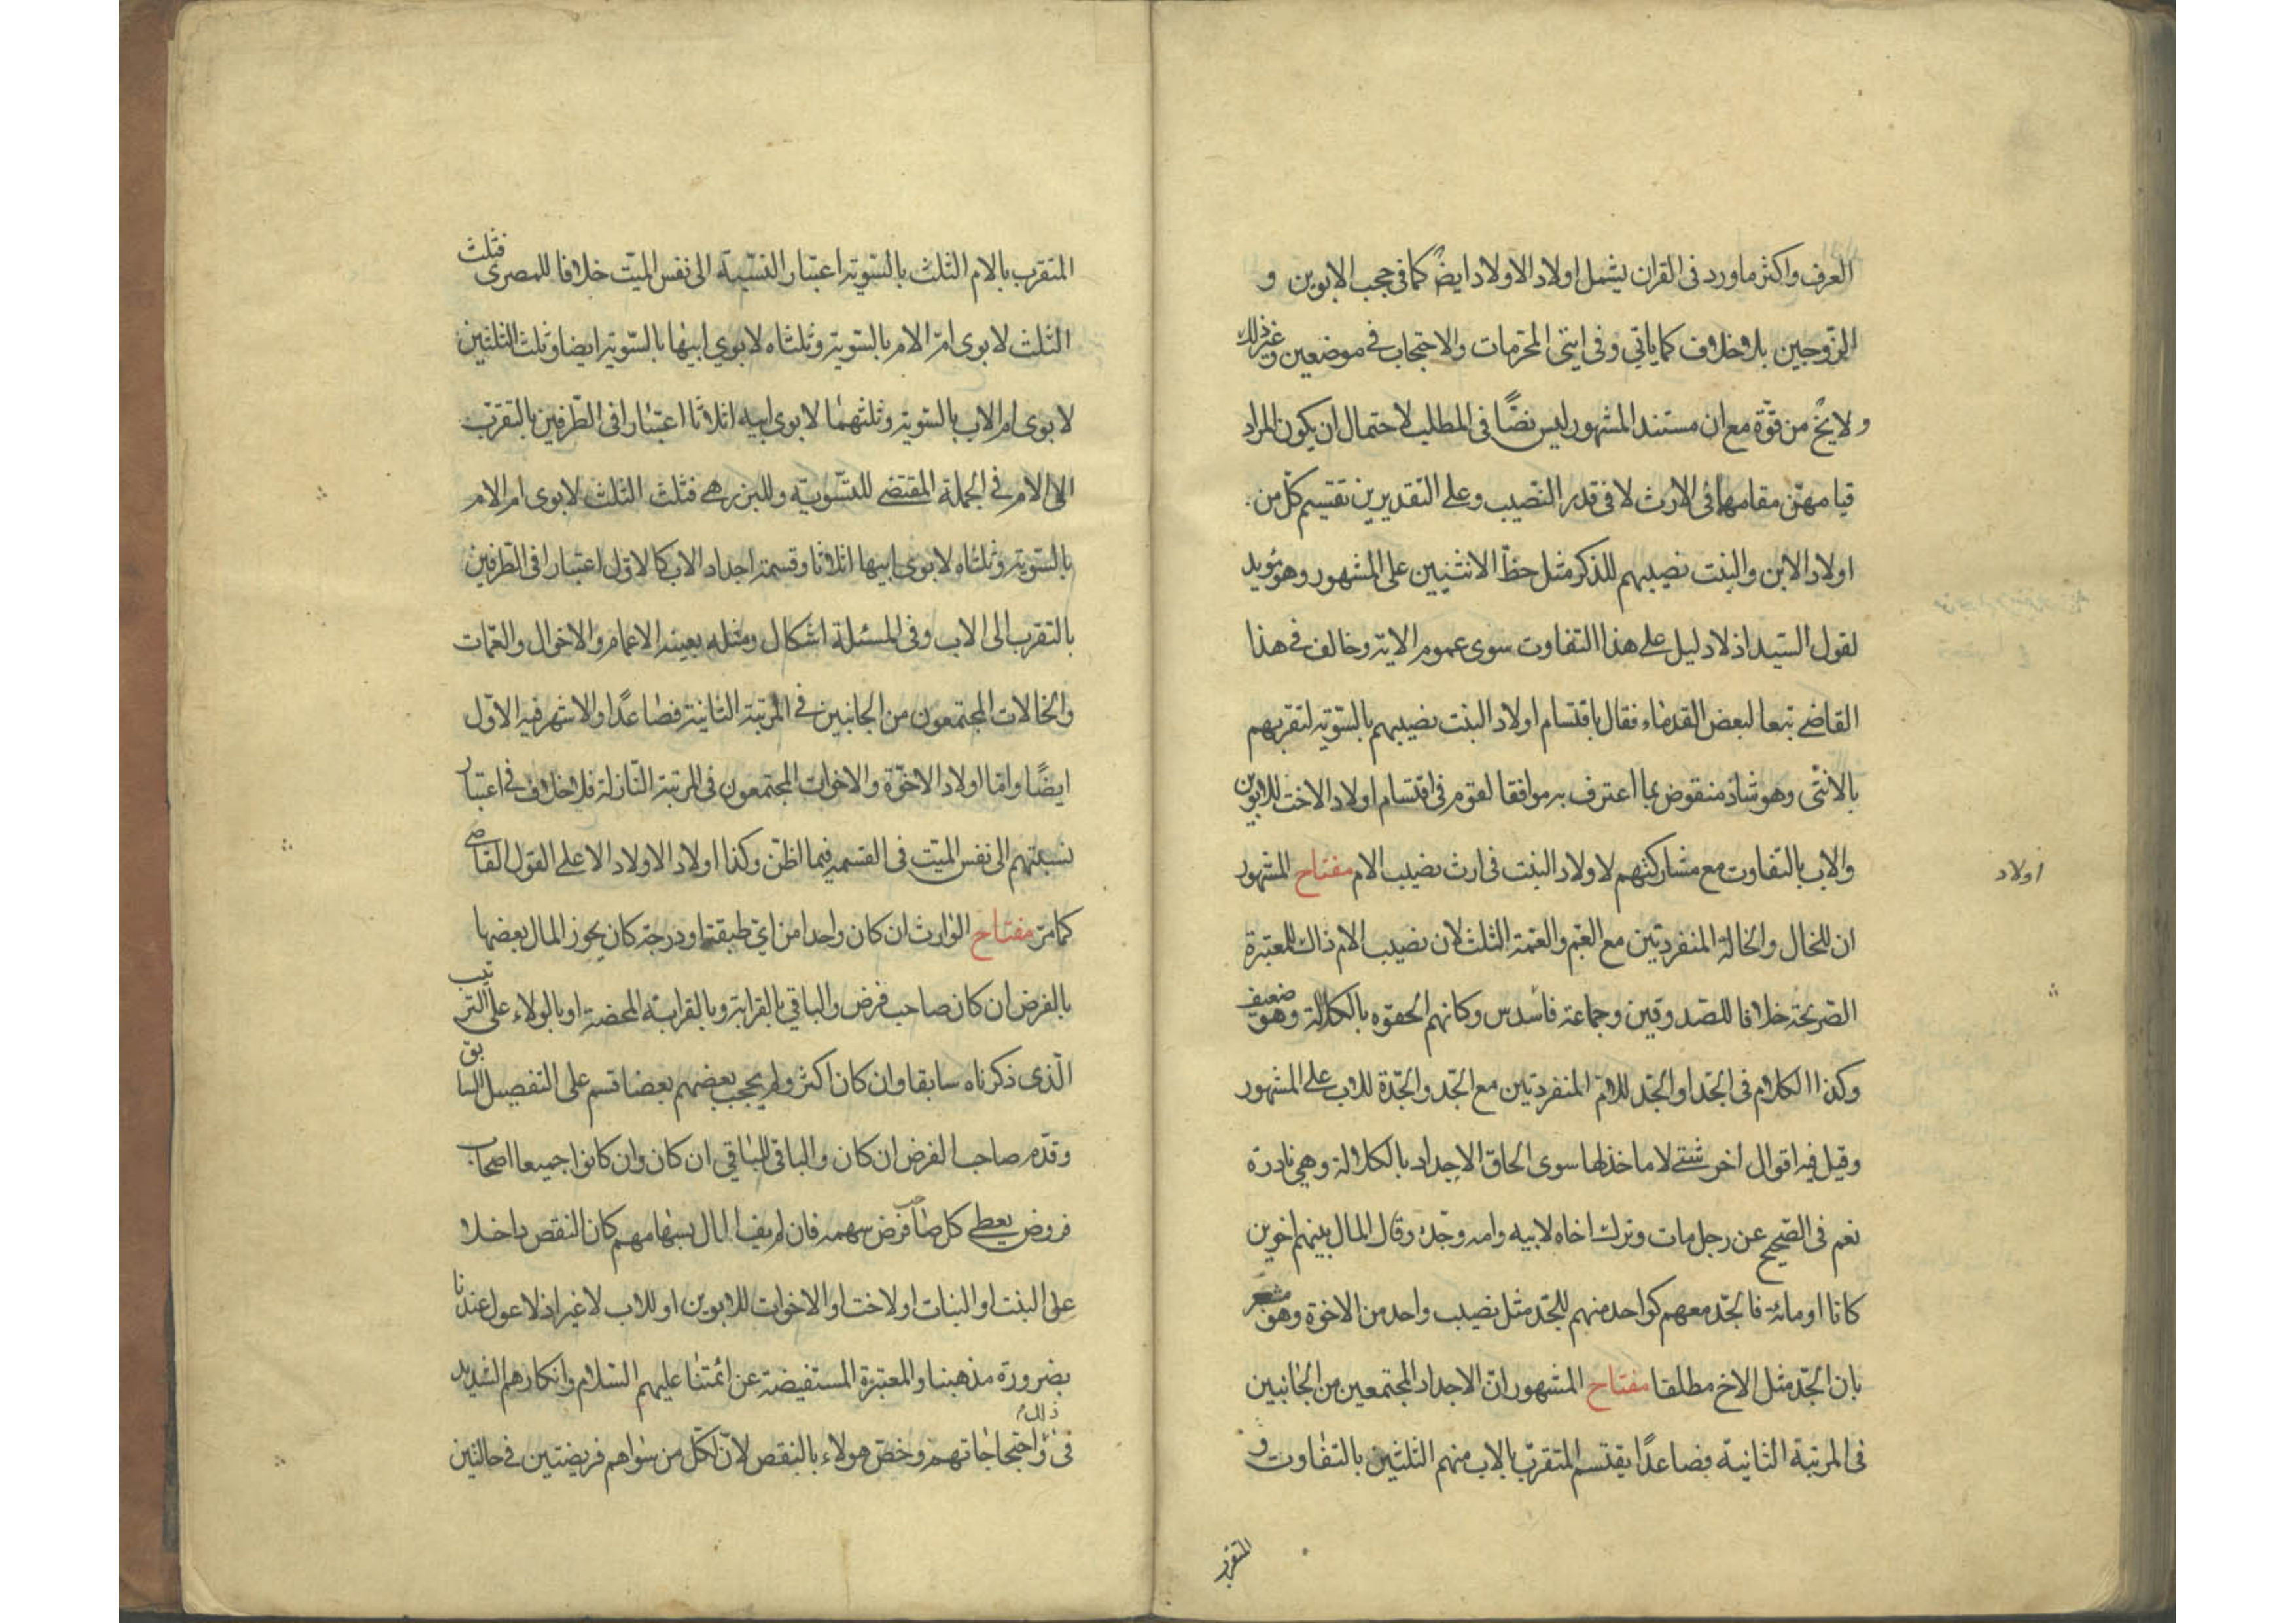 العرف واكثر ما ورد فى القران يشمل اولاد الاولاد ايضً كما فى حجب الابوين و
الزّوجين بلا خلاف كما ياتي وفى ايتى المحرمات والاحتجاب فى موضعين وغير ذلك
و لا يخ من قوّة مع ان مستند المشهور ليس نصًّا فى المطلب لاحتمال ان يكون المراد
قيامهنّ مقامها فى الارث لا فى قدر النّصيب وعلى التقديرين تقتسم كلّ من
اولاد الابن والبنت نصيبهم للذكر مثل حظّ الانثيين على المشهور وهو يؤيد
لقول السّيد اذ لا دليل على هذا التفاوت سوى عموم الاية وخالف فى هذا
القاضى تبعا لبعض القدماء فقال باقتسام اولاد البنت نصيبهم بالسّوية لتقربهم
بالانثى وهو شاذ منقوض بما اعترف به موافقا لقوم فى اقتسام اولاد الاخت للابوين
والاب بالتفاوت مع مشاركتهم لاولاد البنت فى ارث نصيب الام مفتاح المشهور
اولاد
ان للخال والخالة المنفردين مع العّم والعّمة الثلث لان نصيب الام ذاك للمعتبرة
الصّريحة خلافا للصّدوقين وجماعة فالسّدس وكانهم الحقوه بالكلالة وهو ضعيف
وكذا الكلام فى الجّد او الجّد للامّ المنفردين مع الجّد والجّدة للاب على المشهور
وقيل فيه اقوال اخر شتّى لا ماخذ لها سوى الحاق الاجداد بالكلالة وهي نادرة
نعم فى الصّحيح عن رجل مات وترك اخاه لابيه وامه وجّده وقال المال بينهم اخوين
كانا او مائة فالجّد معهم كواحد منهم للجّد مثل نصيب واحد من الاخوة وهو مشعر
بان الجّد مثل الاخ مطلقا مفتاح المشهور انّ الاجداد المجتمعين من الجانبين
فى المرتبة الثانية فصاعدًا يقتسم المتقرّب بالاب منهم الثلثين بالتفاوت و
المتقرب
المتقرب بالام الثلث بالسّوية اعتبار النسّبة الى نفس الميّت خلافا للمصرى فثلث
الثلث لابوى امّ الام بالسّوية وثلثاه لابوي ابيها بالسّوية ايضا وثلث الثلثين
لابوى ام الاب بالسّوية وثلثهما لابوى ابيه اثلاثا اعتبارا فى الطّرفين بالتقرّب
الى الام فى الجملة المقتضى للتّسوية وللبرزهى فثلث الثلث لابوى ام الام
بالسّوية وثلثاه لابوى ابيها اثلاثا وقسمة اجداد الاب كالاوّل اعتبارا فى الطّرفين
بالتقرب الى الاب وفى المسئلة اشكال ومثله بعينه الاعمام والاخوال والعّمات
والخالات المجتمعون من الجانبين فى المرتبة الثانية فصاعدًا والاشهر فيه الاوّل
ايضًا وامّا اولاد الاخوّة والاخوات المجتمعون فى المرتبة النّازلة فلا خلاف فى اعتبار
نسبتهم الى نفس الميّت فى القسمة فيما اظنّ وكذا اولاد الاولاد الا على القول القاضى
كما مرّ مفتاح الوارث ان كان واحدا من اي طبقة او درجة كان يحوز المال بعضها
بالفرض ان كان صاحب فرض والباقي بالقرابة وبالقرابة المحضة او بالولاء على الترتيب
الّذى ذكرناه سابقا وان كان اكثر ولم يحجب بعضهم بعضا قسم على التفصيل السابق
وقدّم صاحب الفرض ان كان والباقى للباقي ان كان وان كانوا جميعا اصحاب
فروض يعطى كل صاحب فرض سهمه فان لم يف المال بسهامهم كان النقص داخلا
على البنت او البنات او لاخت او الاخوات للابوين او للاب لا غير اذ لا عول عندنا
بضرورة مذهبنا والمعتبرة المستفيضة عن ائمتنا عليهم السّلام وانكارهم الشديد
فى ذلك واحتجاجاتهم وخصّ هولاء بالنقص لانّ لكّل من سواهم فريضتين فى حالتين